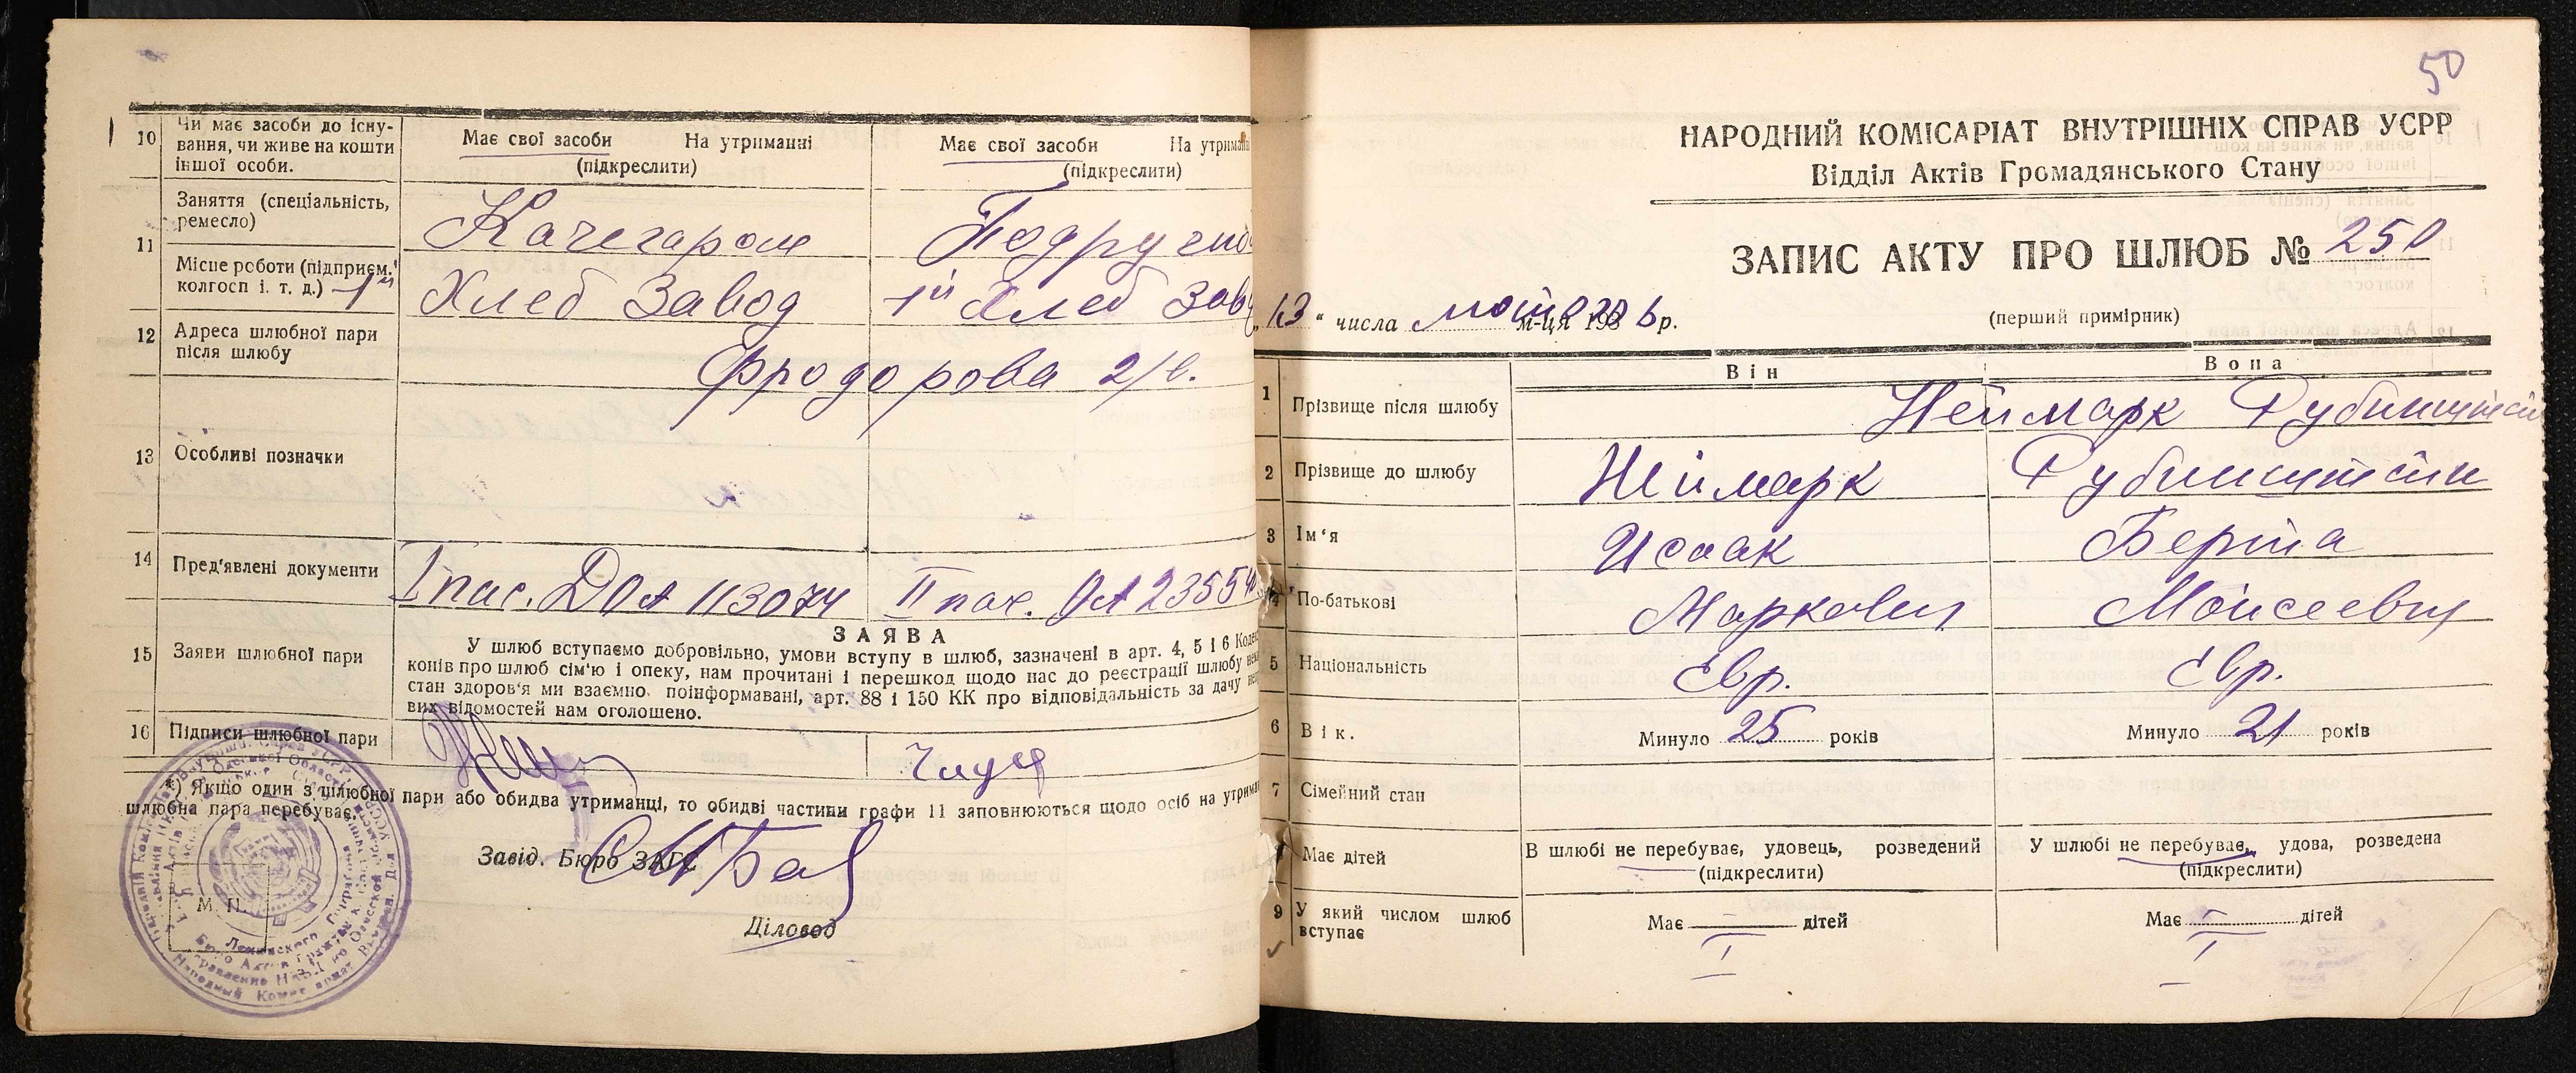 10 Чи має засоби до існу-
вання, чи живе на кошти
іншої особи.
Має свої засоби На утриманні
(підкреслити)
Має свої засоби На утрима
(підкреслити)
11 Заняття (спеціальність,
ремесло)
Качегаром
Подручно
Місце роботи (підприєм.
колгосп і. т. д.) 1й
Хлеб Завод
1й Хлеб Заво
12 Адреса шлюбної пари
після шлюбу
2/
13 Особливі позначки
14 Пред'явлені документи
I пас. 113074
II пас.
ЗАЯВА
15 Заяви шлюбної пари
У шлюб вступаємо добровільно, умови вступу в шлюб, зазначені в арт. 4, 5 і 6 Кодек
конів про шлюб сім'ю і опеку, нам прочитані і перешкод щодо нас до реєстрації шлюбу нем
стан здоров'я ми взаємно поінформавані, арт. 88 і 150 КК про відповідальність за дачу неп
вих відомостей нам оголошено.
16 Підписи шлюбної пари
*) Якщо один з шлюбної пари або обидва утриманці, то обидві частини графи 11 заповнюються щодо осіб на утриман
шлюбна пара перебуває.
Завід. Бюро ЗАГС
М. П.
Діловод
50
НАРОДНИЙ КОМІСАРІАТ ВНУТРІШНІХ СПРАВ УСРР
Відділ Актів Громадянського Стану
ЗАПИС АКТУ ПРО ШЛЮБ № 250
„13" числа м-ця 1936 р.
(перший примірник)
Він
Вона
1 Прізвище після шлюбу
Неймарк Рубинштейн
2 Прізвище до шлюбу
Неймарк
Рубинштейн
3 Ім'я
Исаак
Берта
4 По-батькові
Маркович
Моисеевич
5 Національність
Евр.
Евр.
6 Вік.
Минуло 25 років
Минуло 21 років
7 Сімейний стан
В шлюбі не перебуває, удовець, розведений
(підкреслити)
У шлюбі не перебуває, удова, розведена
(підкреслити)
Має дітей
Має — дітей
Має — дітей
9 У який числом шлюб
вступає
I
I